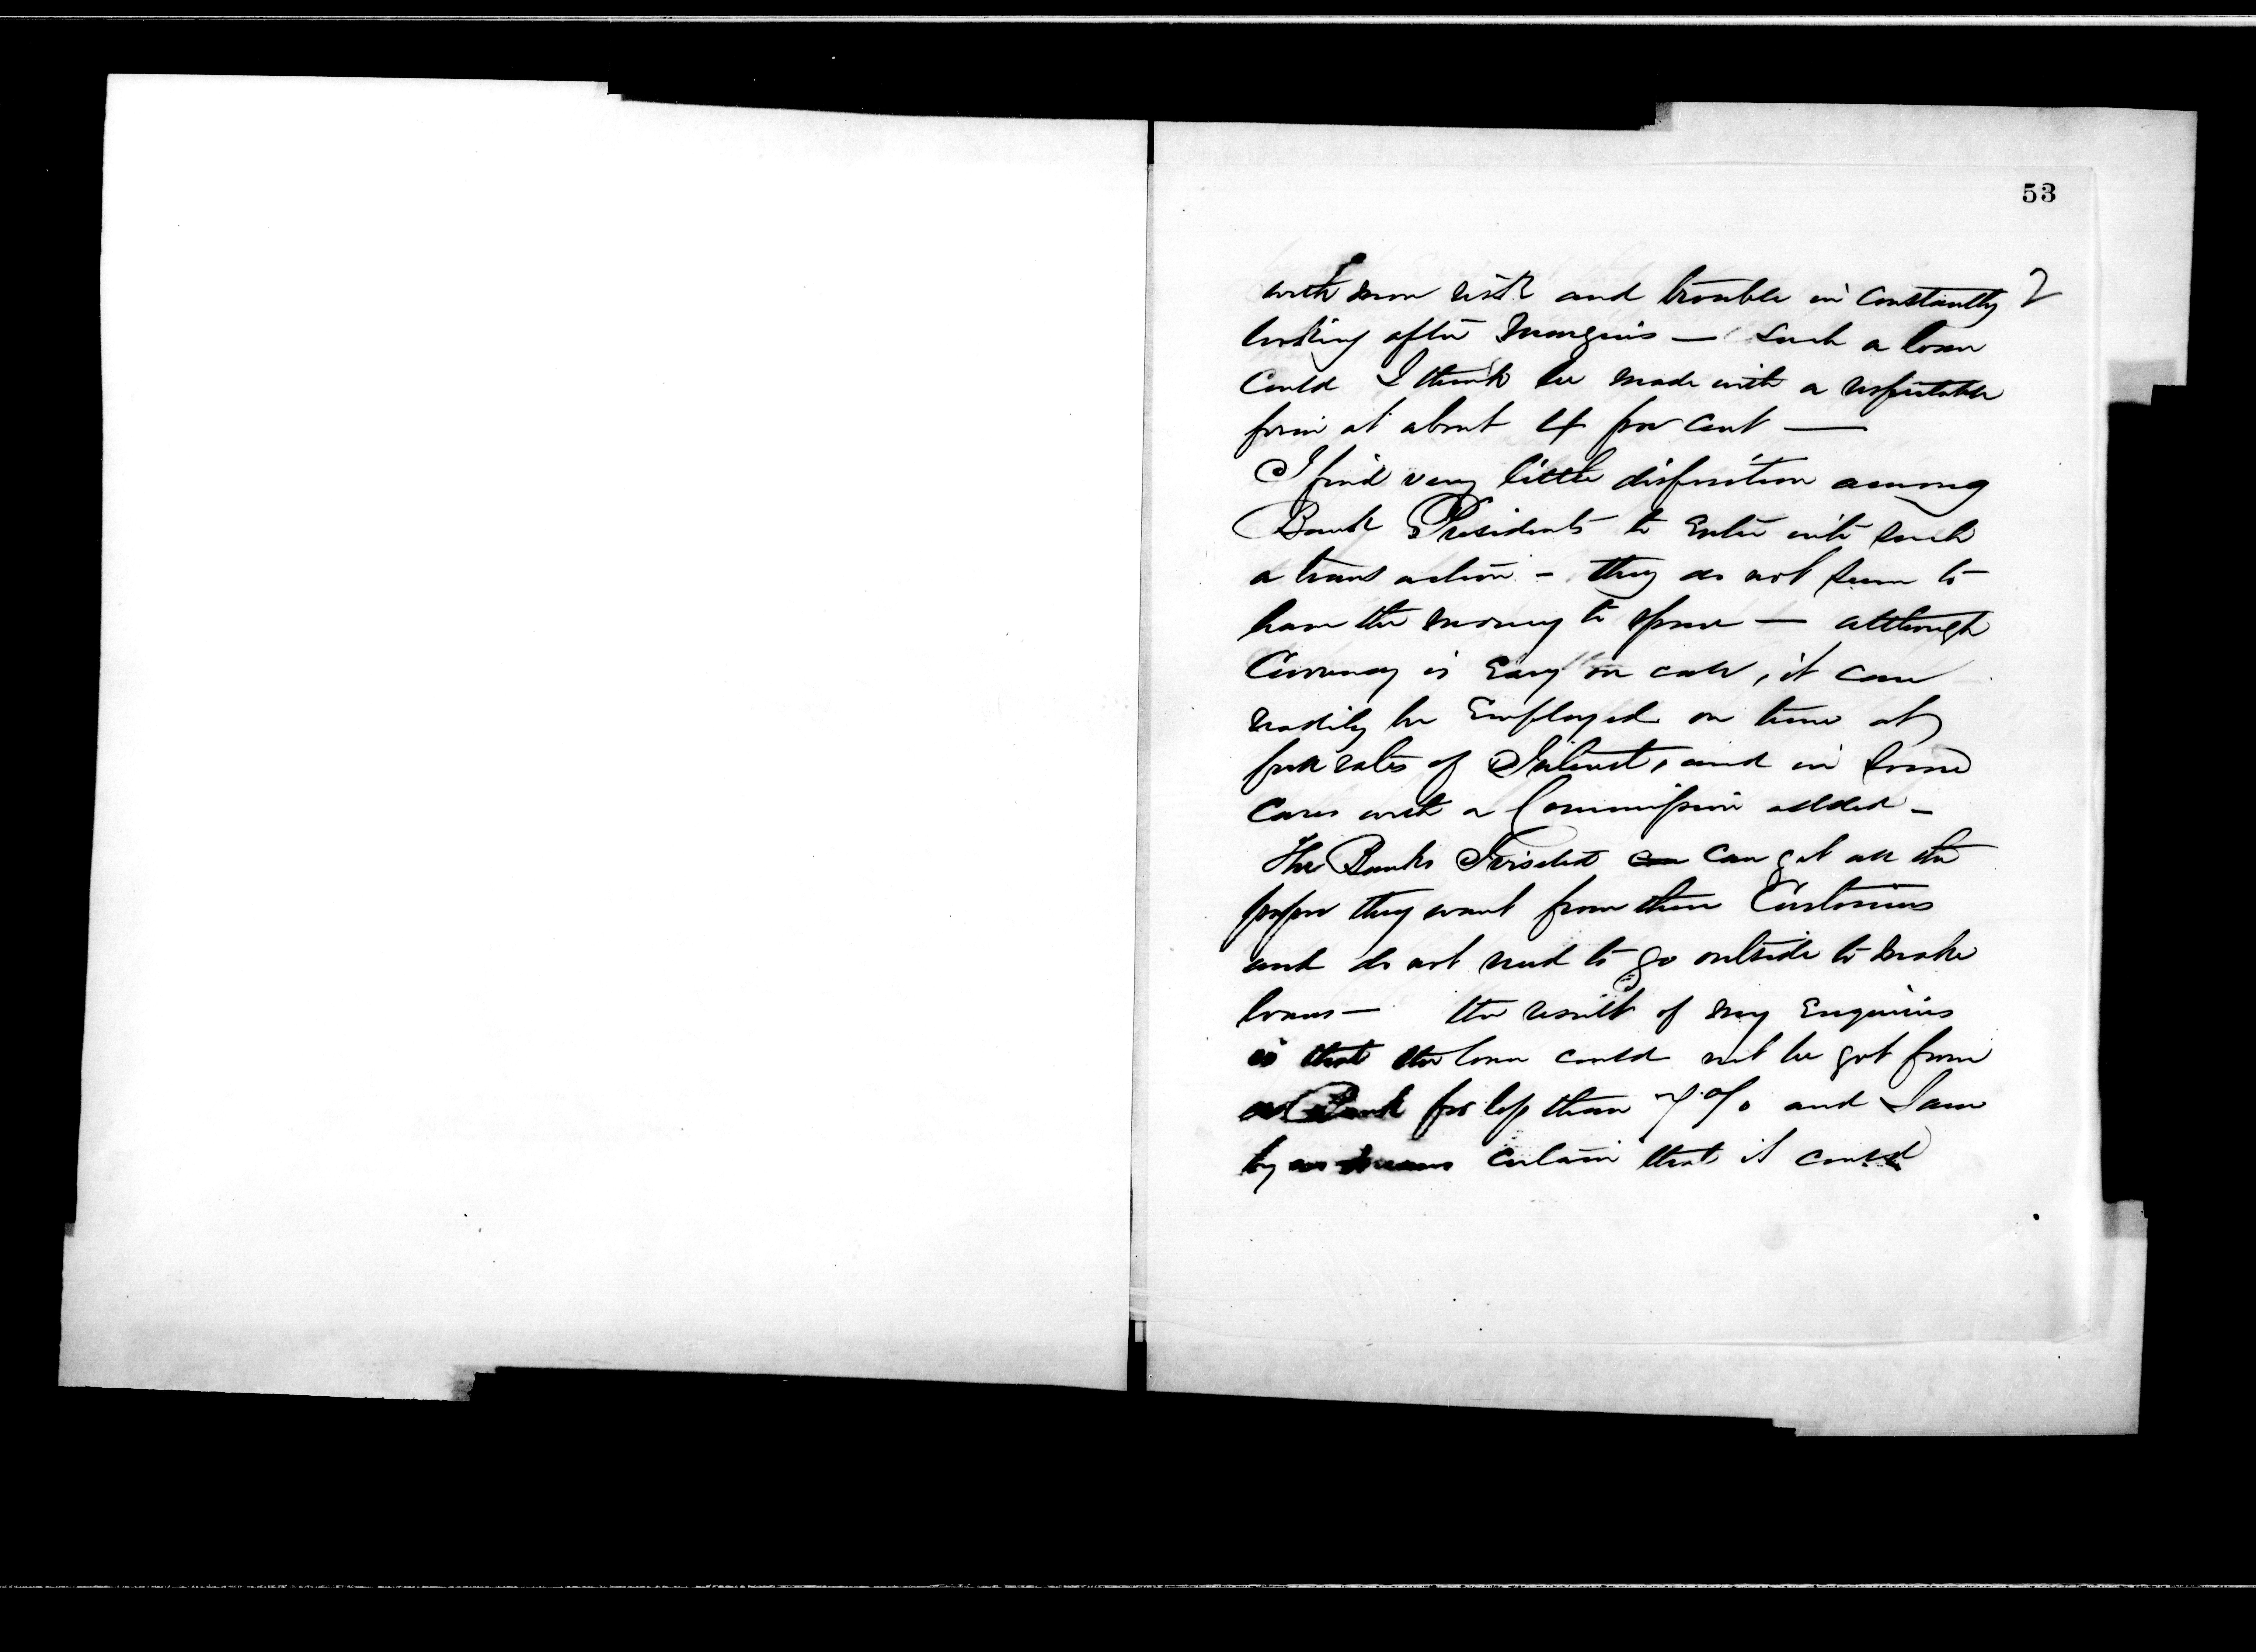 53
with more risk and trouble in constantly 2
looking after Margins — Such a loan
could I think be made with a respectable
firm at about 4 per cent —
I find very little disposition among
Bank Presidents to Enter into such
a trans action - they do not seem to
have the money to spare — although
Currency is Easy on call, it can
readily be Employed on time at
full rates of Interest, and in some
cases with a Commission added -
The Banks I visited can get all the
paper they want from their Customers
and do not need to go outside to make
loans — the result of my Enquiries
is that the loan could not be got from
a Bank for less than 7% and I am
by no means certain that it could